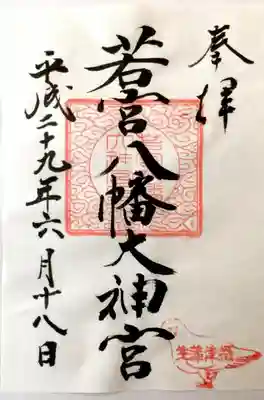 奉拝
若宮八幡大神宮
平成二十九年六月十八日